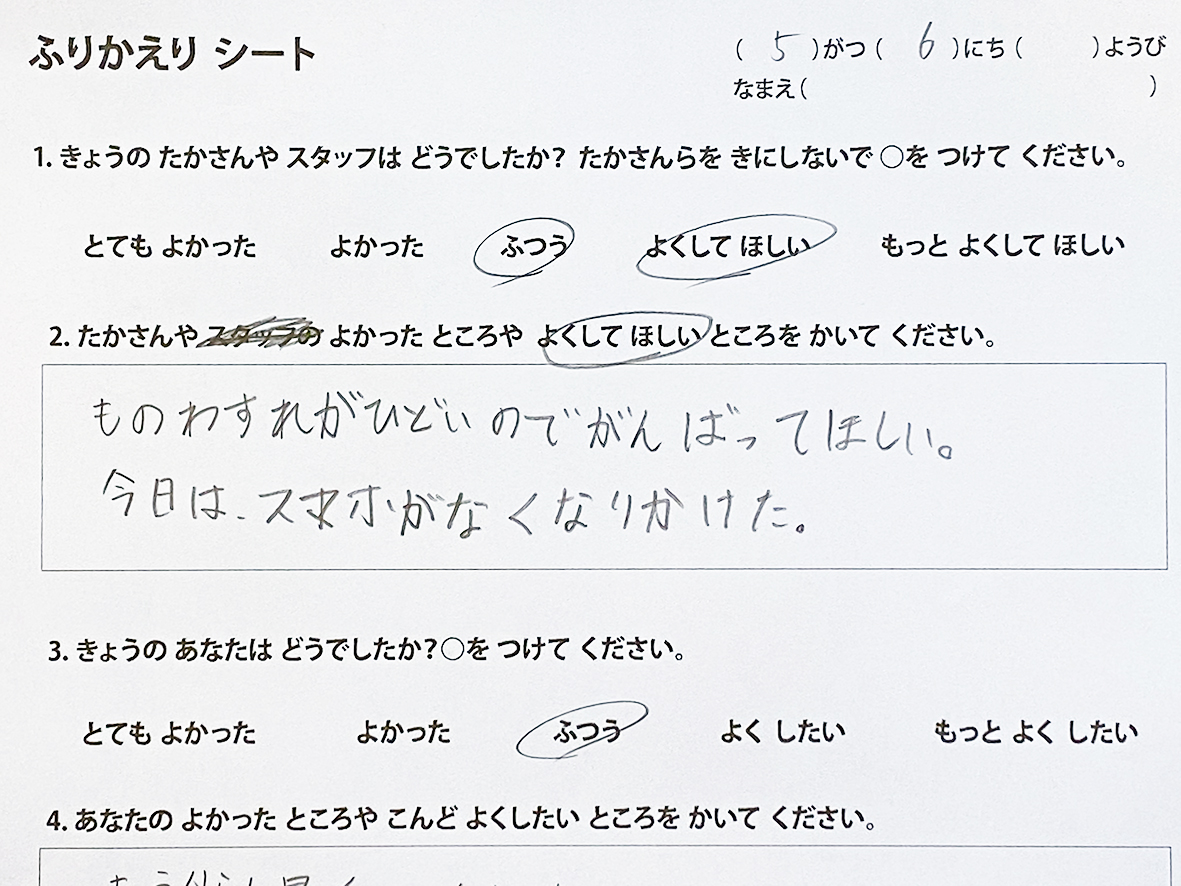 ふりかえり シート
( 5 )がつ ( 6 )にち ( )ようび
なまえ( )
1. きょうの たかさんや スタッフは どうでしたか? たかさんらを きにしないで ○を つけて ください。
とても よかった よかった ふつう よくして ほしい もっと よくして ほしい
2. たかさんや スタッフの よかった ところや よくして ほしい ところを かいて ください。
ものわすれがひどいのでがんばってほしい。
今日は、スマホがなくなりかけた。
3. きょうの あなたは どうでしたか?○を つけて ください。
とても よかった よかった ふつう よく したい もっと よく したい
4. あなたの よかった ところや こんど よくしたい ところを かいて ください。